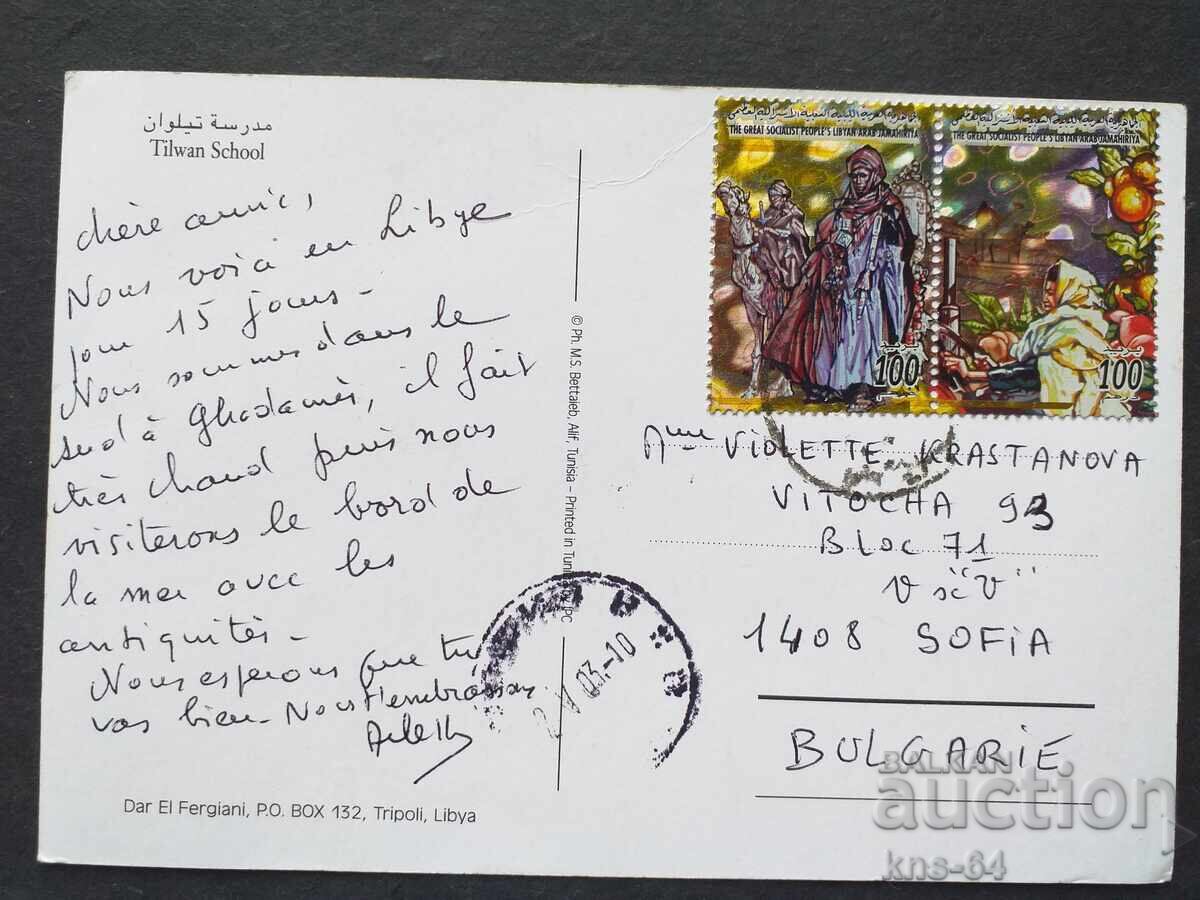 مدرسة تيلوان
Tilwan School
chère amie,
Nous voici en Libye
pour 15 jours -
Nous sommes dans le
sud à Ghadamès, il fait
très chaud puis nous
visiterons le bord de
la mer avec les
antiquités -
Nous espérons que tu
vas bien - Nous t'embrassons
Dar El Fergiani, P.O. BOX 132, Tripoli, Libya
© Ph. M.S. Bettaieb, Alif, Tunisia – Printed in Tunisia JPC
THE GREAT SOCIALIST PEOPLE'S LIBYAN ARAB JAMAHIRIYA
بريد
100
THE GREAT SOCIALIST PEOPLE'S LIBYAN ARAB JAMAHIRIYA
بريد
100
درهم
Mme VIOLETTE KRASTANOVA
VITOCHA 93
Bloc 71
1408 SOFIA
BULGARIE
03.-10
BALKAN
auction
kns-64